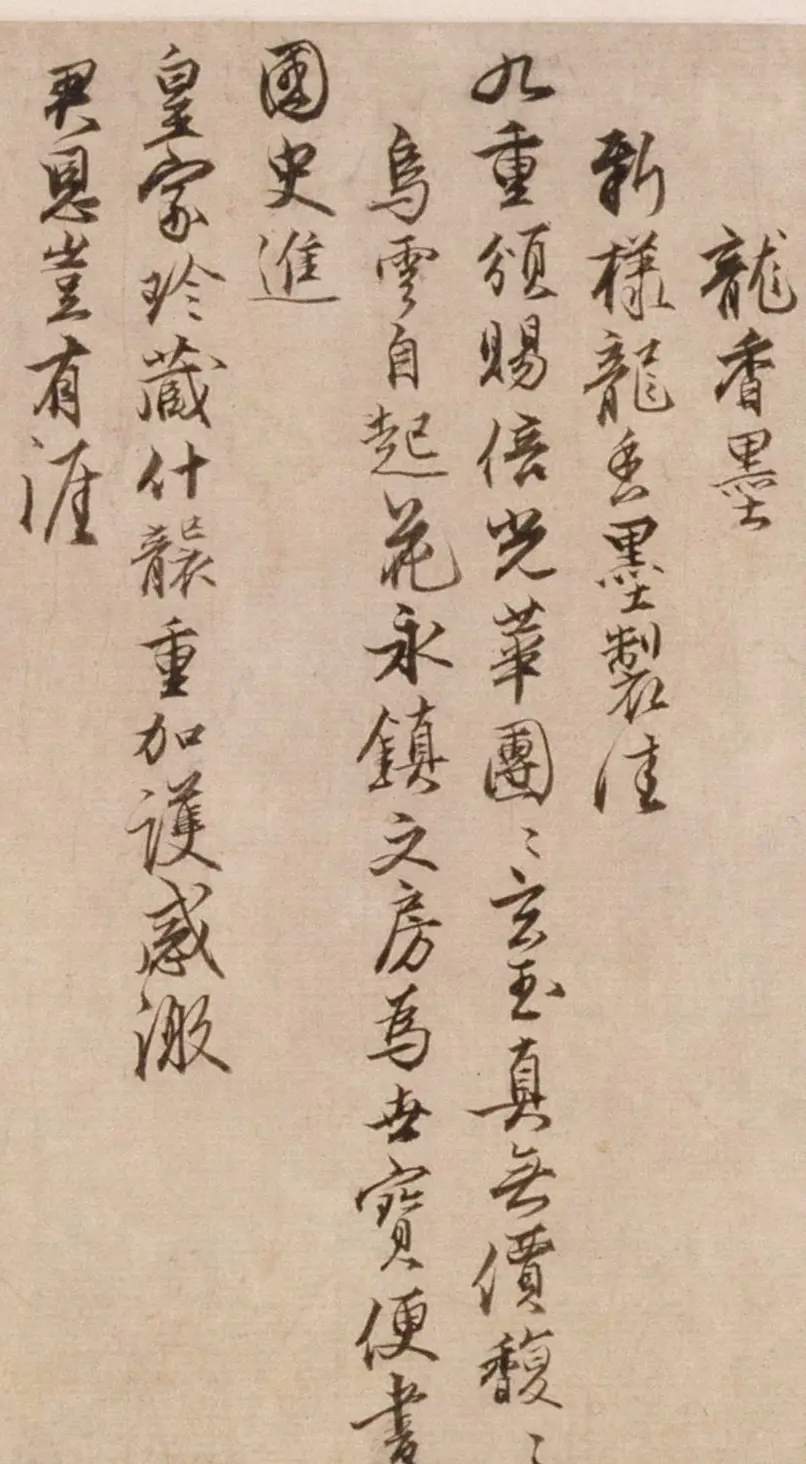 龍香墨
新樣龍香墨製佳
九重頒賜倍光華團〻玄玉真無價馥〻
烏雲自起花永鎮文房為世寶便書
國史進
皇家珍藏什襲重加護感激
天恩豈有涯